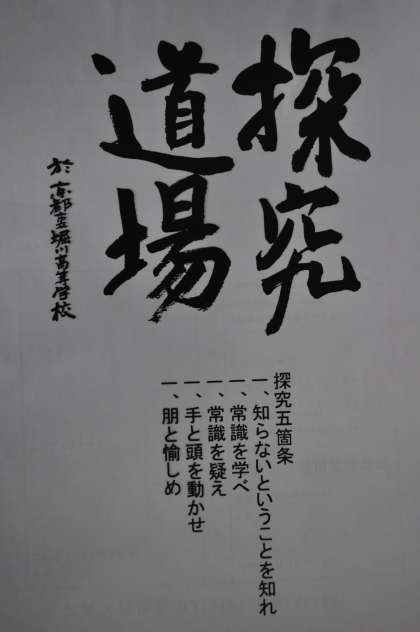 探究
道場
於京都市立堀川高等学校
探究五箇条
一、知らないということを知れ
一、常識を学べ
一、常識を疑え
一、手と頭を動かせ
一、朋と愉しめ